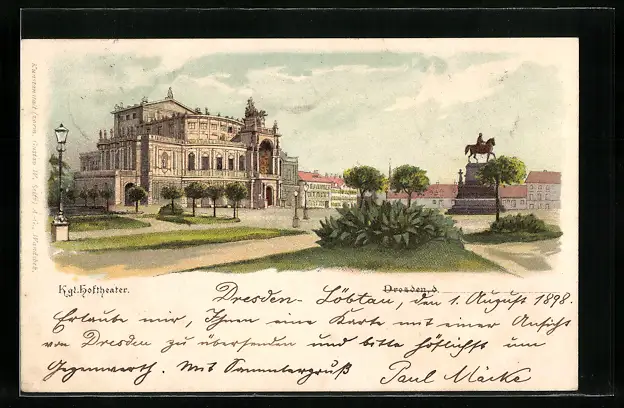 Kgl. Hoftheater.
Dresden, d.
Dresden-Löbtau, den 1. August 1898.
Erlaube mir, Ihnen eine Karte mit einer Ansicht
von Dresden zu übersenden und bitte höflichst um
Gegenwerth. Mit Sammlergruß
Paul Mäcke